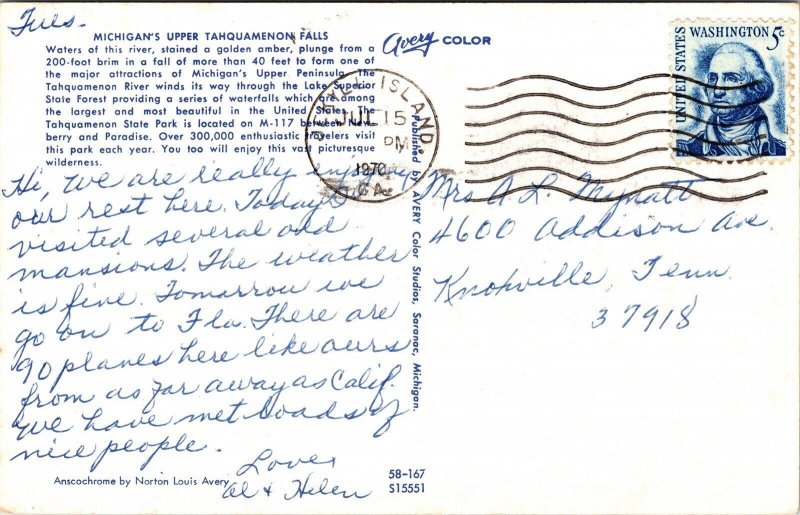 Tues.
MICHIGAN'S UPPER TAHQUAMENON FALLS
Waters of this river, stained a golden amber, plunge from a
200-foot brim in a fall of more than 40 feet to form one of
the major attractions of Michigan's Upper Peninsula. The
Tahquamenon River winds its way through the Lake Superior
State Forest providing a series of waterfalls which are among
the largest and most beautiful in the United States. The
Tahquamenon State Park is located on M-117 between New-
berry and Paradise. Over 300,000 enthusiastic travelers visit
this park each year. You too will enjoy this vast picturesque
wilderness.
Hi, We are really enjoying
our rest here. Today
visited several old
mansions. The weather
is fine. Tomarrow we
go on to Fla. There are
90 planes here like ours
from as far away as Calif.
We have met loads of
nice people.
Love,
Al & Helen
Anscochrome by Norton Louis Avery
58-167
S15551
Avery COLOR
Published by AVERY Color Studios, Saranac, Michigan.
JEKYLL ISLAND
JUL 15
PM
1970
GA.
UNITED STATES
WASHINGTON 5c
Mrs A. L. Mynatt
4600 Addison Ave.
Knoxville, Tenn.
37918